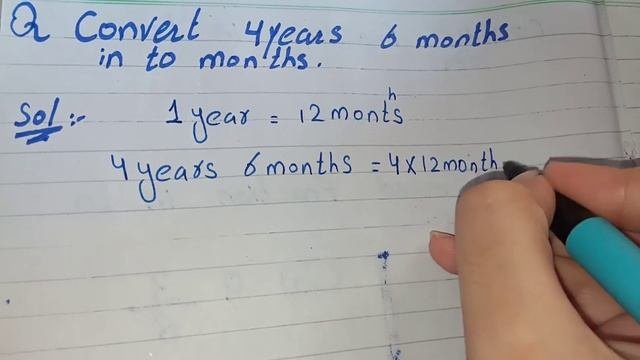 Q Convert 4years 6 months
in to months.
Sol:- 1 year = 12 months
4 years 6 months = 4 X 12 month